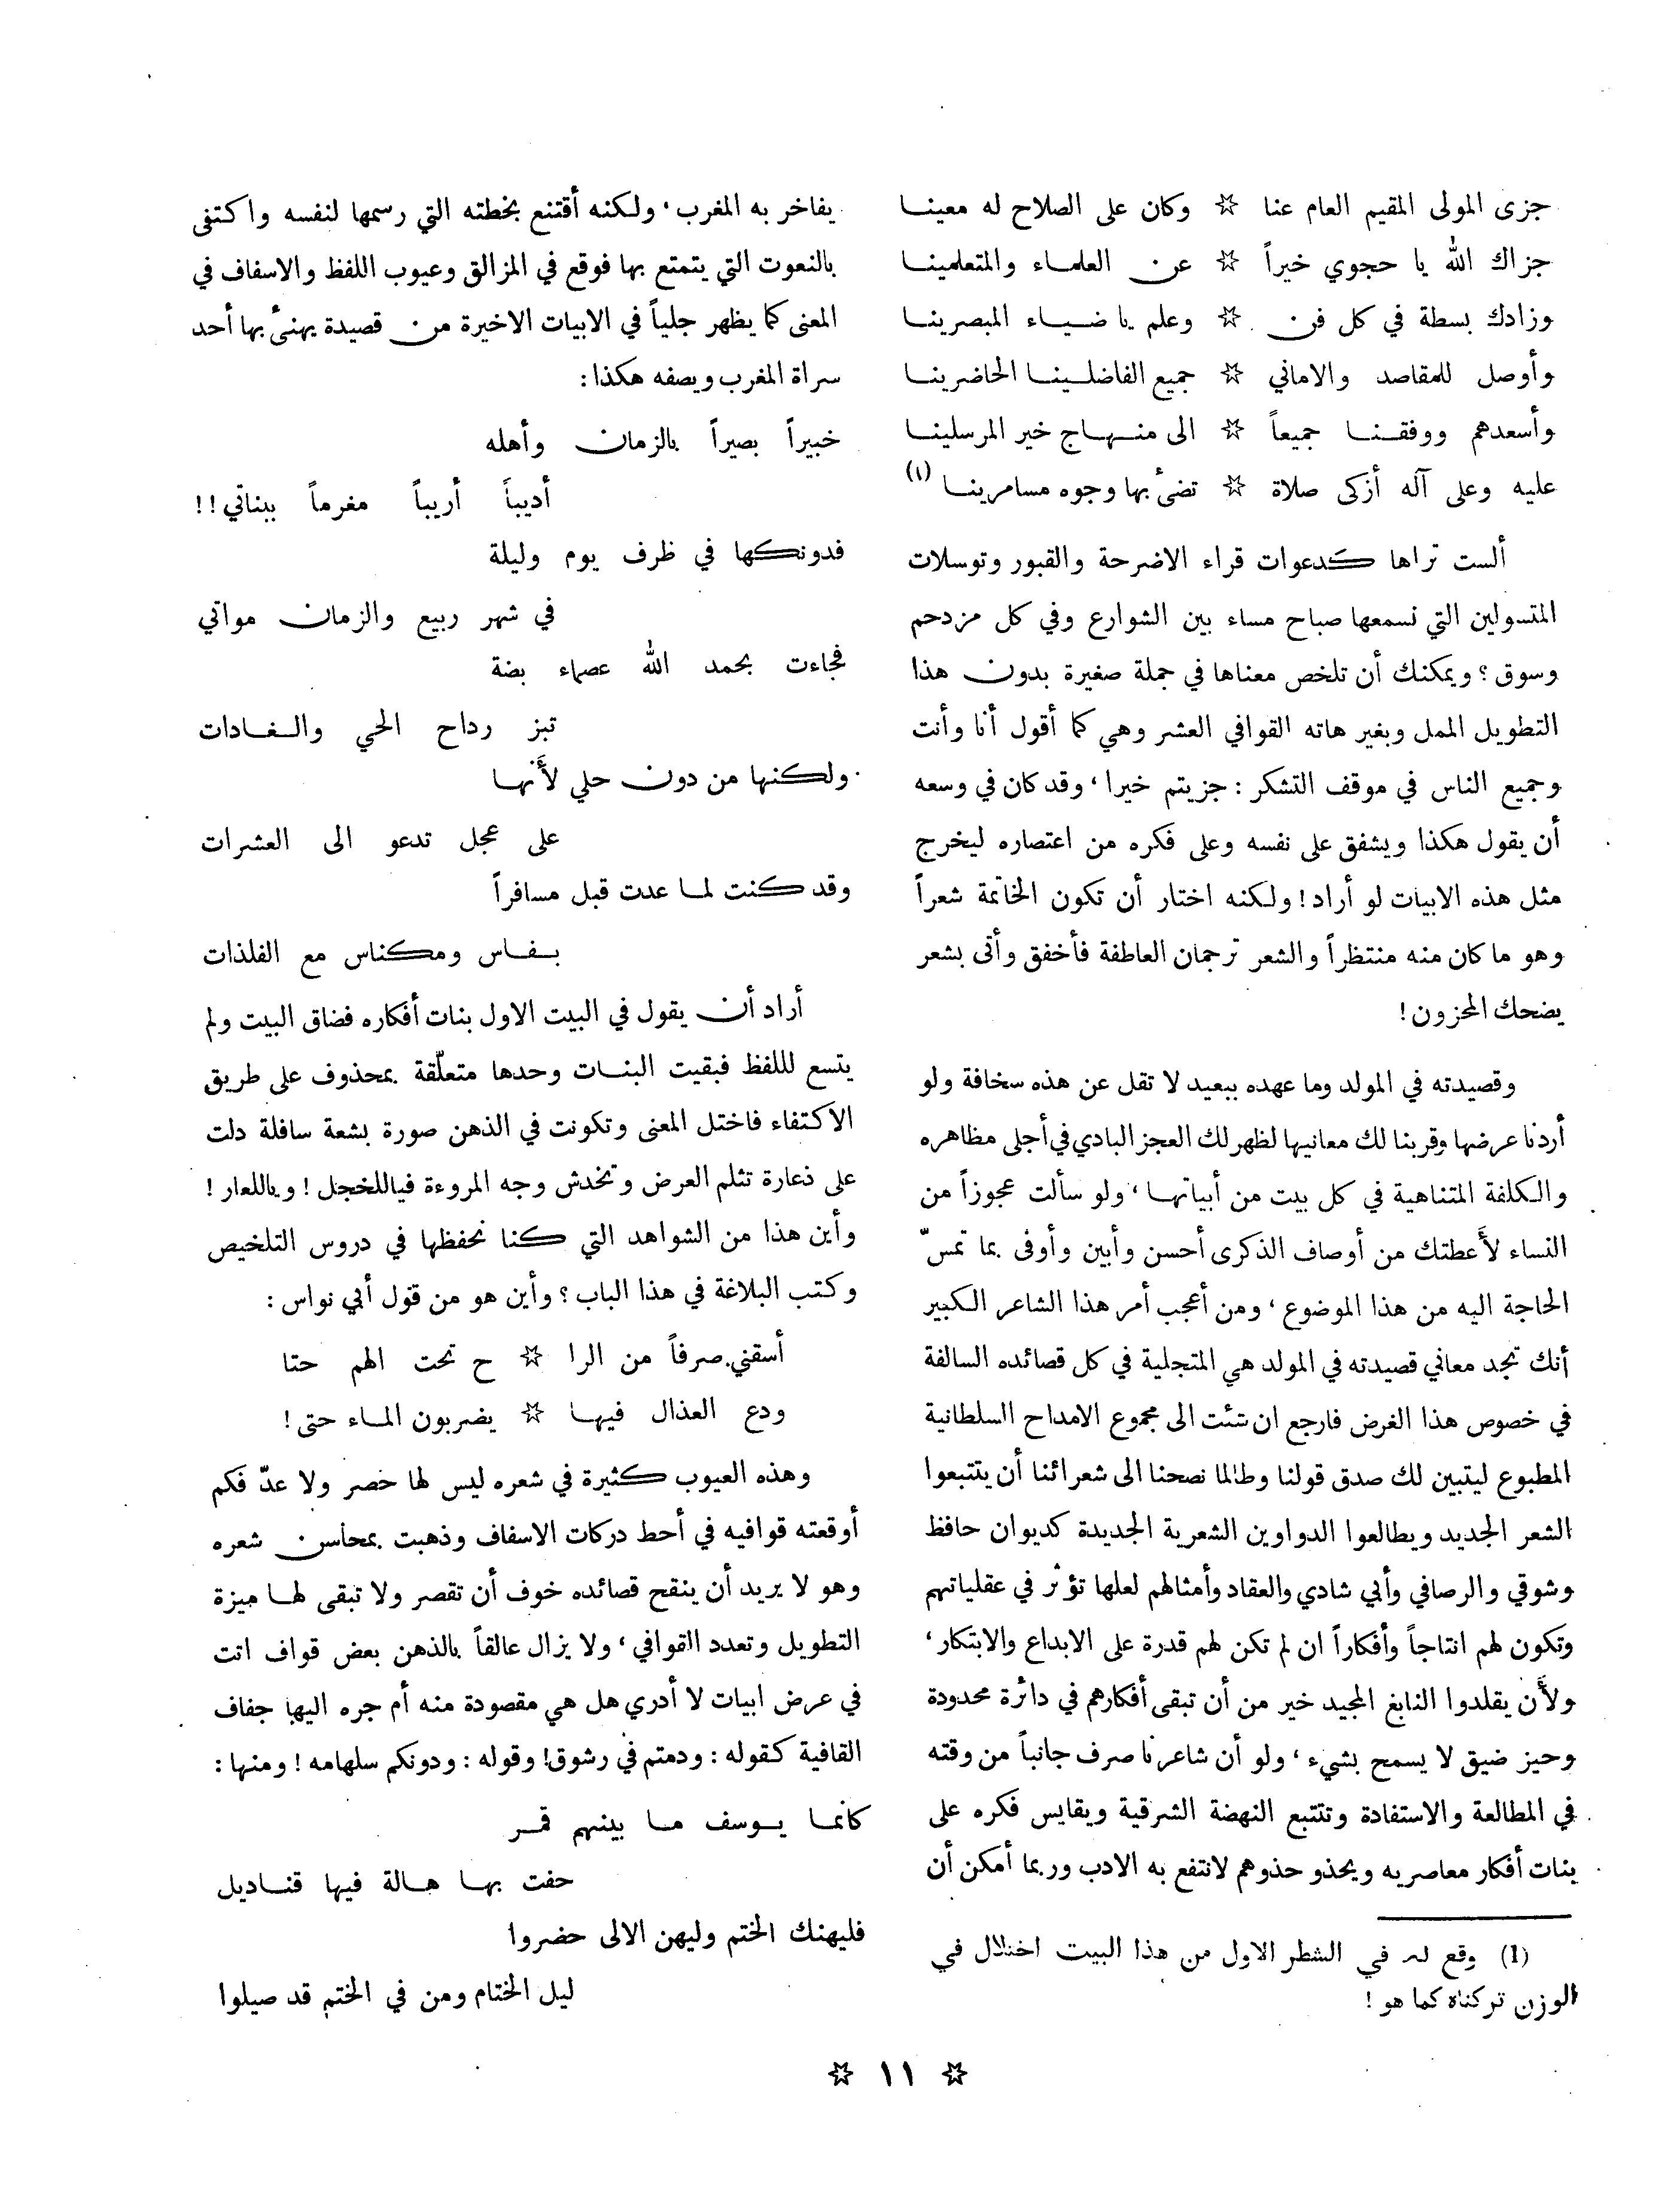 جزى المولى المقيم العام عنا ☆ وكان على الصلاح له معينا
جزاك الله يا حجوي خيراً ☆ عن العلماء والمتعلمينا
وزادك بسطة في كل فن ☆ وعلم يا ضياء المبصرينا
وأوصل للمقاصد والاماني ☆ جميع الفاضلينا الحاضرينا
وأسعدهم ووفقنا جميعاً ☆ الى منهاج خير المرسلينا
عليه وعلى آله أزكى صلاة ☆ تضئ بها وجوه مسامرينا (١)
ألست تراها كدعوات قراء الاضرحة والقبور وتوسلات
المتسولين التي نسمعها صباح مساء بين الشوارع وفي كل مزدحم
وسوق ؟ ويمكنك أن تلخص معناها في جملة صغيرة بدون هذا
التطويل الممل وبغير هاته القوافي العشر وهي كما أقول أنا وأنت
وجميع الناس في موقف التشكر : جزيتم خيرا ، وقد كان في وسعه
أن يقول هكذا ويشفق على نفسه وعلى فكره من اعتصاره ليخرج
مثل هذه الابيات لو أراد ! ولكنه اختار أن تكون الخاتمة شعراً
وهو ما كان منه منتظراً والشعر ترجمان العاطفة فأخفق وأتى بشعر
يضحك المحزون !
وقصيدته في المولد وما عهده ببعيد لا تقل عن هذه سخافة ولو
أردنا عرضها وقربنا لك معانيها لظهر لك العجز البادي في أجلى مظاهره
والكلفة المتناهية في كل بيت من أبياتها ، ولو سألت عجوزاً من
النساء لأعطتك من أوصاف الذكرى أحسن وأبين وأوفى بما تمسّ
الحاجة اليه من هذا الموضوع ، ومن أعجب أمر هذا الشاعر الكبير
أنك تجد معاني قصيدته في المولد هي المتجلية في كل قصائده السالفة
في خصوص هذا الغرض فارجع ان شئت الى مجموع الامداح السلطانية
المطبوع ليتبين لك صدق قولنا وطالما نصحنا الى شعرائنا أن يتتبعوا
الشعر الجديد ويطالعوا الدواوين الشعرية الجديدة كديوان حافظ
وشوقي والرصافي وأبي شادي والعقاد وأمثالهم لعلها تؤثر في عقلياتهم
وتكون لهم انتاجاً وأفكاراً ان لم تكن لهم قدرة على الابداع والابتكار ،
ولأن يقلدوا النابغ المجيد خير من أن تبقى أفكارهم في دائرة محدودة
وحيز ضيق لا يسمح بشيء ، ولو أن شاعرنا صرف جانباً من وقته
في المطالعة والاستفادة وتتتبع النهضة الشرقية ويقايس فكره على
بنات أفكار معاصريه ويحذو حذوهم لانتفع به الادب وربما أمكن أن
(1) وقع له في الشطر الاول من هذا البيت اختلال في
الوزن تركناه كما هو !
يفاخر به المغرب ، ولكنه أقتنع بخطته التي رسمها لنفسه واكتفى
بالنعوت التي يتمتع بها فوقع في المزالق وعيوب اللفظ والاسفاف في
المعنى كما يظهر جلياً في الابيات الاخيرة من قصيدة يهنئ بها أحد
سراة المغرب ويصفه هكذا :
خبيراً بصيراً بالزمان وأهله
أديباً أريباً مغرماً ببناتي ! !
فدونكها في ظرف يوم وليلة
في شهر ربيع والزمان مواتي
فجاءت بحمد الله عصماء بضة
تبز رداح الحي والغادات
ولكنها من دون حلي لأنها
على عجل تدعو الى العشرات
وقد كنت لما عدت قبل مسافراً
بفاس ومكناس مع الفلذات
أراد أن يقول في البيت الاول بنات أفكاره فضاق البيت ولم
يتسع لللفظ فبقيت البنات وحدها متعلّقة بمحذوف على طريق
الاكتفاء فاختل المعنى وتكونت في الذهن صورة بشعة سافلة دلت
على ذعارة تثلم العرض وتخدش وجه المروءة فياللخجل ! وياللعار !
وأين هذا من الشواهد التي كنا نحفظها في دروس التلخيص
وكتب البلاغة في هذا الباب ؟ وأين هو من قول أبي نواس :
أسقني صرفاً من الرا ☆ ح تحت الهم حتا
ودع العذال فيها ☆ يضربون الماء حتى !
وهذه العيوب كثيرة في شعره ليس لها حصر ولا عدّ فكم
أوقعته قوافيه في أحط دركات الاسفاف وذهبت بمحاسن شعره
وهو لا يريد أن ينقح قصائده خوف أن تقصر ولا تبقى لها ميزة
التطويل وتعدد القوافي ، ولا يزال عالقاً بالذهن بعض قواف اتت
في عرض ابيات لا أدري هل هي مقصودة منه أم جره اليها جفاف
القافية كقوله : ودمتم في رشوق ! وقوله : ودونكم سلهامه ! ومنها :
كأنما يوسف ما بينهم قمر
حفت بها هالة فيها قناديل
فليهنك الختم وليهن الالى حضروا
ليل الختام ومن في الختم قد صيلوا
☆ ١١ ☆